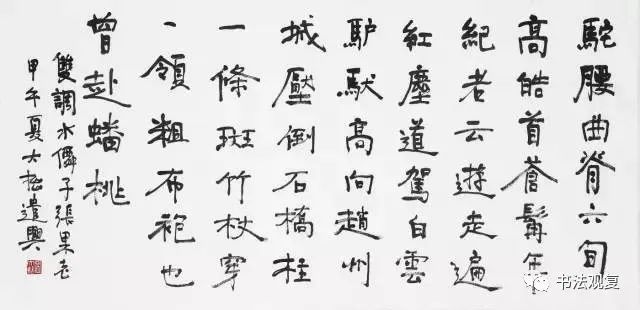 駝腰曲脊六旬
高皓首蒼髯年
紀老云遊走遍
紅塵道駕白雲
驴馱高向趙州
城壓倒石橋柱
一條斑竹杖穿
一領粗布袍也
曾赴蟠桃
雙調水僊子張果老
甲午夏大松遣興
书法观复